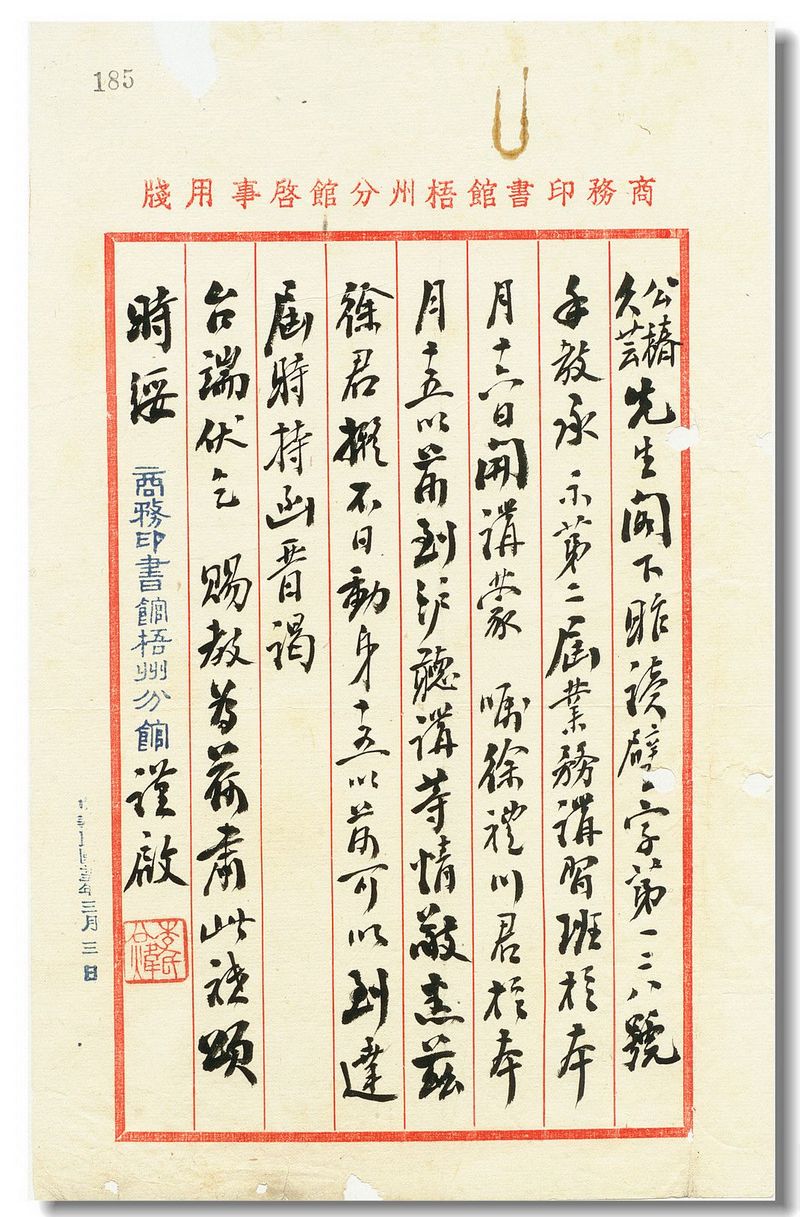 185
商務印書館梧州分館啓事用牋
公椿
久芸
先生閣下昨讀璧字第一二八號
手教承示第二屆業務講習班於本
月十六日開講蒙 囑徐禮川君於本
月十五以前到沪聽講等情敬悉茲
徐君擬不日動身十五以前可以到達
屆時持函晋謁
台端伏乞 賜教為荷肅此祗頌
時綏 商務印書館梧州分館 謹啟
年三月三日